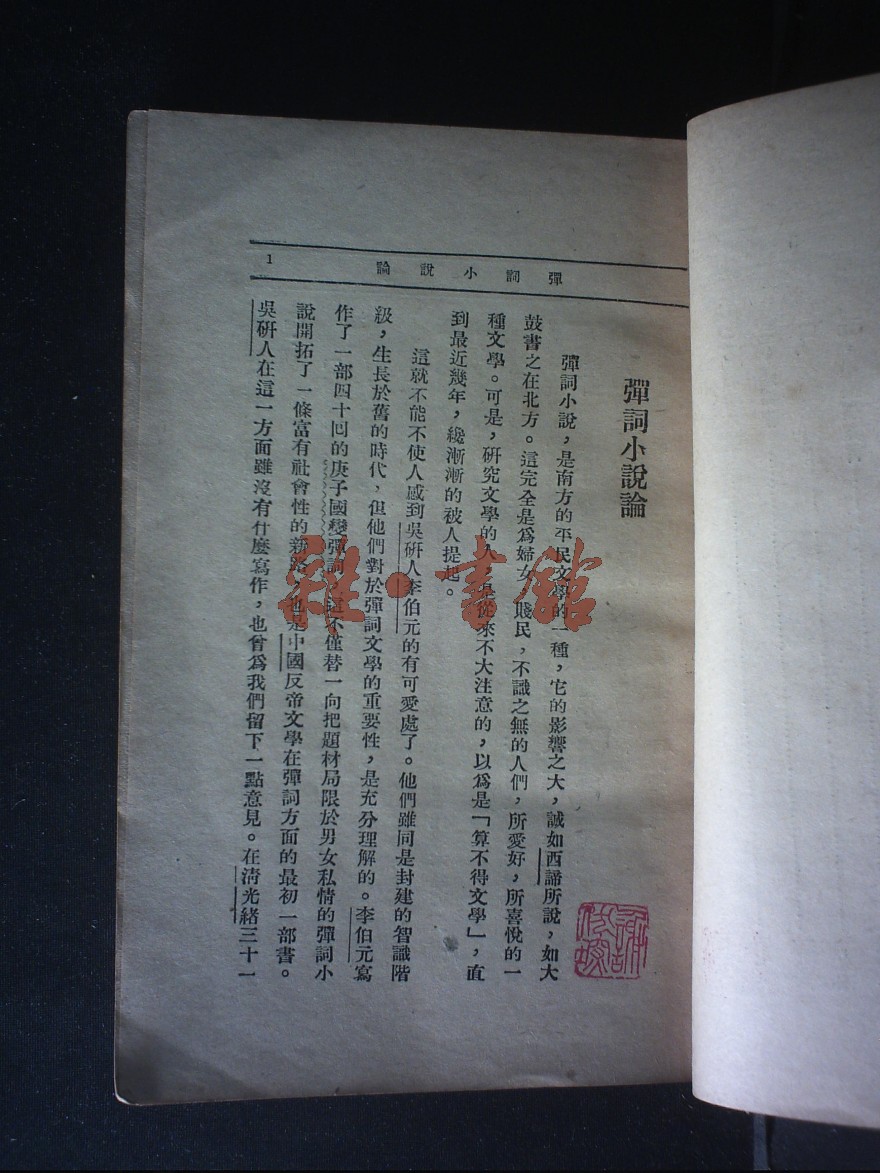 彈詞小說論
1
彈詞小說論
彈詞小說，是南方的平民文學的一種，它的影響之大，誠如西諦所說，如大
鼓書之在北方。這完全是爲婦女，賤民，不識之無的人們，所愛好，所喜悅的一
種文學。可是，研究文學的人，是從來不大注意的，以爲是「算不得文學」，直
到最近幾年，纔漸漸的被人提起。
這就不能不使人感到吳研人李伯元的有可愛處了。他們雖同是封建的智識階
級，生長於舊的時代，但他們對於彈詞文學的重要性，是充分理解的。李伯元寫
作了一部四十回的庚子國變彈詞，這不僅替一向把題材局限於男女私情的彈詞小
說開拓了一條富有社會性的新路，也是中國反帝文學在彈詞方面的最初一部書。
吳研人在這一方面雖沒有什麼寫作，也曾爲我們留下一點意見。在清光緒三十一
雜·書館